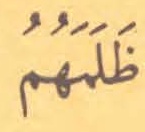 ظَلَمَهُمُ